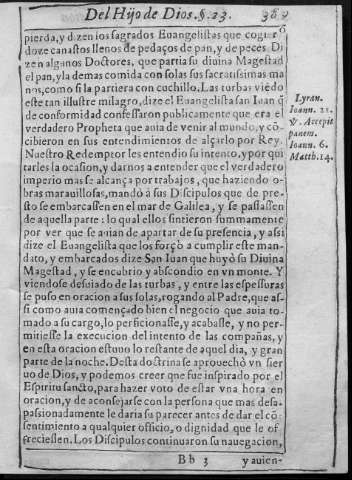 Del Hijo de Dios. §. 23. 389
pierda, y dizen los sagrados Euangelistas que cogierō
doze canastos llenos de pedaços de pan, y de peces. Di
zen algunos Doctores, que partia su diuina Magestad
el pan, y la demas comida con solas sus sacratissimas ma
nos, como si la partiera con cuchillo. Las turbas viēdo
este tan illustre milagro, dize el Euangelista san Iuan q̃
de conformidad confessaron publicamente que era el
verdadero Propheta que auia de venir al mundo, y cō
cibieron en sus entendimientos de alçarlo por Rey.
Nuestro Redemptor les entendio su intento, y por qui
tarles la ocasion, y darnos a entender que el verdadero
imperio mas se alcança por trabajos, que haziendo o-
bras marauillosas, mandó à sus Discipulos que de pre-
sto se embarcassen en el mar de Galilea, y se passassen
de aquella parte: lo qual ellos sintieron summamente
por ver que se auian de apartar de su presencia, y assi
dize el Euangelista que los forçò a cumplir este man-
dato, y embarcados dize San Iuan que huyò su Diuina
Magestad, y se encubrio y abscondio en vn monte. Y
viendose desuiado de las turbas, y entre las espessuras
se puso en oracion a sus solas, rogando al Padre, que as-
si como auia començado bien el negocio que auia to-
mado a su cargo, lo perficionasse, y acabasse, y no per-
mitiesse la execucion del intento de las compañas, y
en esta oracion estuuo lo restante de aquel dia, y gran
parte de la noche. Desta doctrina se aprouechò vn sier
uo de Dios, y podemos creer que fue inspirado por el
Espiritu sancto, para hazer voto de estar vna hora en
oracion, y de aconsejarse con la persona que mas desa-
passionadamente le daria su parecer antes de dar el cō-
sentimiento a qualquier officio, o dignidad que le of
freciessen. Los Discipulos continuaron su nauegacion,
Bb 3 y auien-
Lyran.
Ioann. 21.
&. Accepit
panem.
Ioann. 6.
Matth. 14.